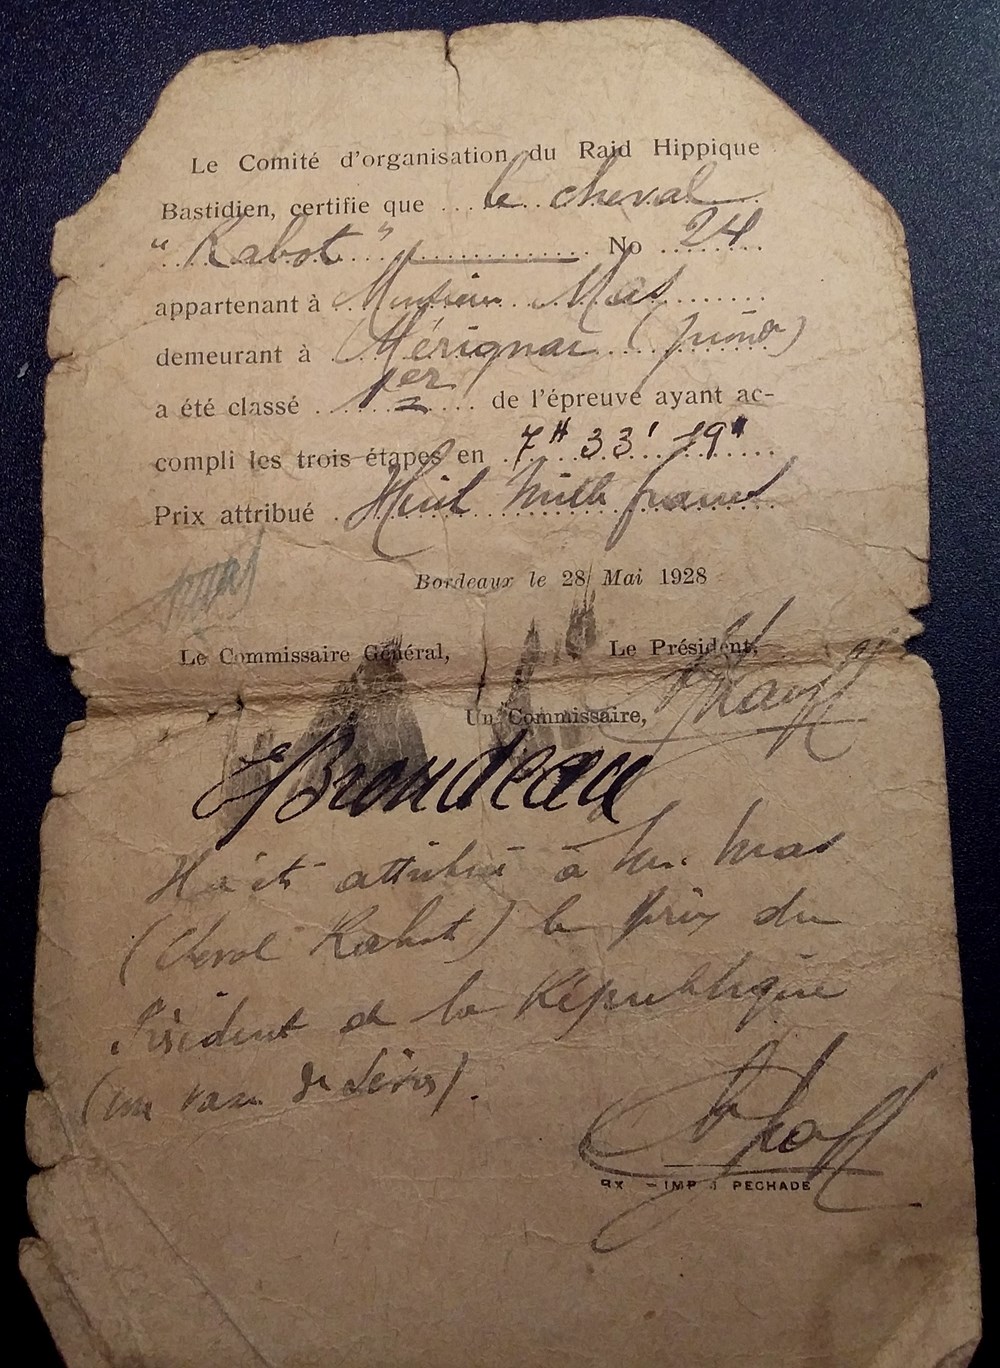 Le Comité d'organisation du Raid Hippique
Bastidien, certifie que le cheval
"Rabot" No 24
appartenant à Monsieur Mas
demeurant à Mérignac (junior)
a été classé 1er de l'épreuve ayant ac-
compli les trois étapes en 7H 33' 19"
Prix attribué Huit mille francs
Mas
Bordeaux le 28 Mai 1928
Le Commissaire Général, Le Président,
Un Commissaire,
Brondeau
Il a été attribué à Mr. Mas
(Cheval Rabot) le prix du
Président de la République
(un vase de Sèvres).
BX - IMP J PECHADE